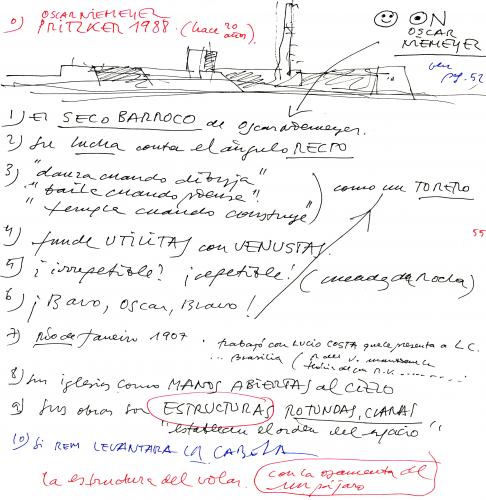 0) OSCAR NIEMEYER
PRITZKER 1988 (hace 20 años).
ON
OSCAR
NIEMEYER
ver
pg. 52
1) El SECO BARROCO de Oscar Niemeyer.
2) Su lucha contra el ángulo RECTO
3) "danza cuando dibuja"
"baila cuando piensa"
"templa cuando construye"
como un TORERO
4) funde UTILITAS con VENUSTAS.
55
5) ¿irrepetible? ¡repetible! (Mendes da Rocha)
6) ¡Bravo, Oscar, Bravo!
7) Río de Janeiro 1907. trabajó con LUCIO COSTA que le presenta a L.C.
... Brasilia (
8) Sus iglesias como MANOS ABIERTAS al CIELO
9) Sus obras son ESTRUCTURAS ROTUNDAS, CLARAS
"establecen el orden del espacio".
10) Si REM LEVANTARA LA CABEZA
La estructura del volar. con la osamenta del
un pájaro